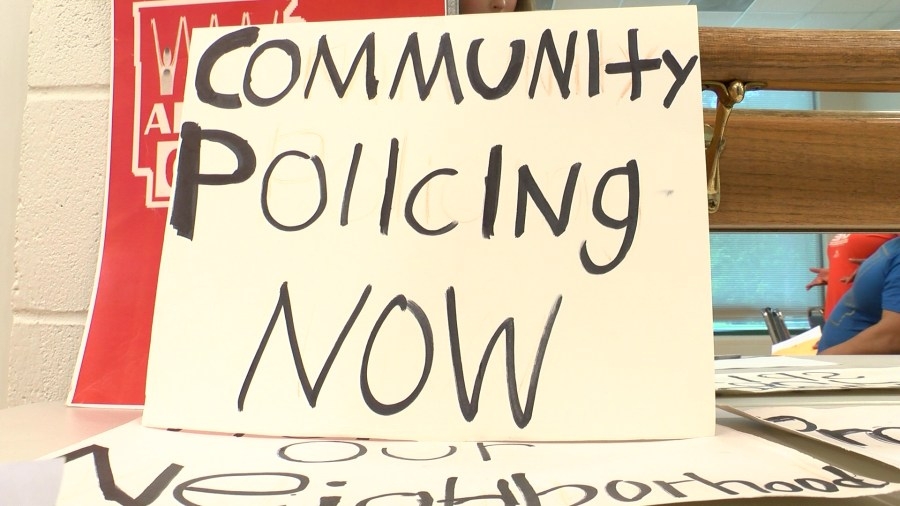 COMMUNIty
POlICINg
NOW
OUr
Neighborhood